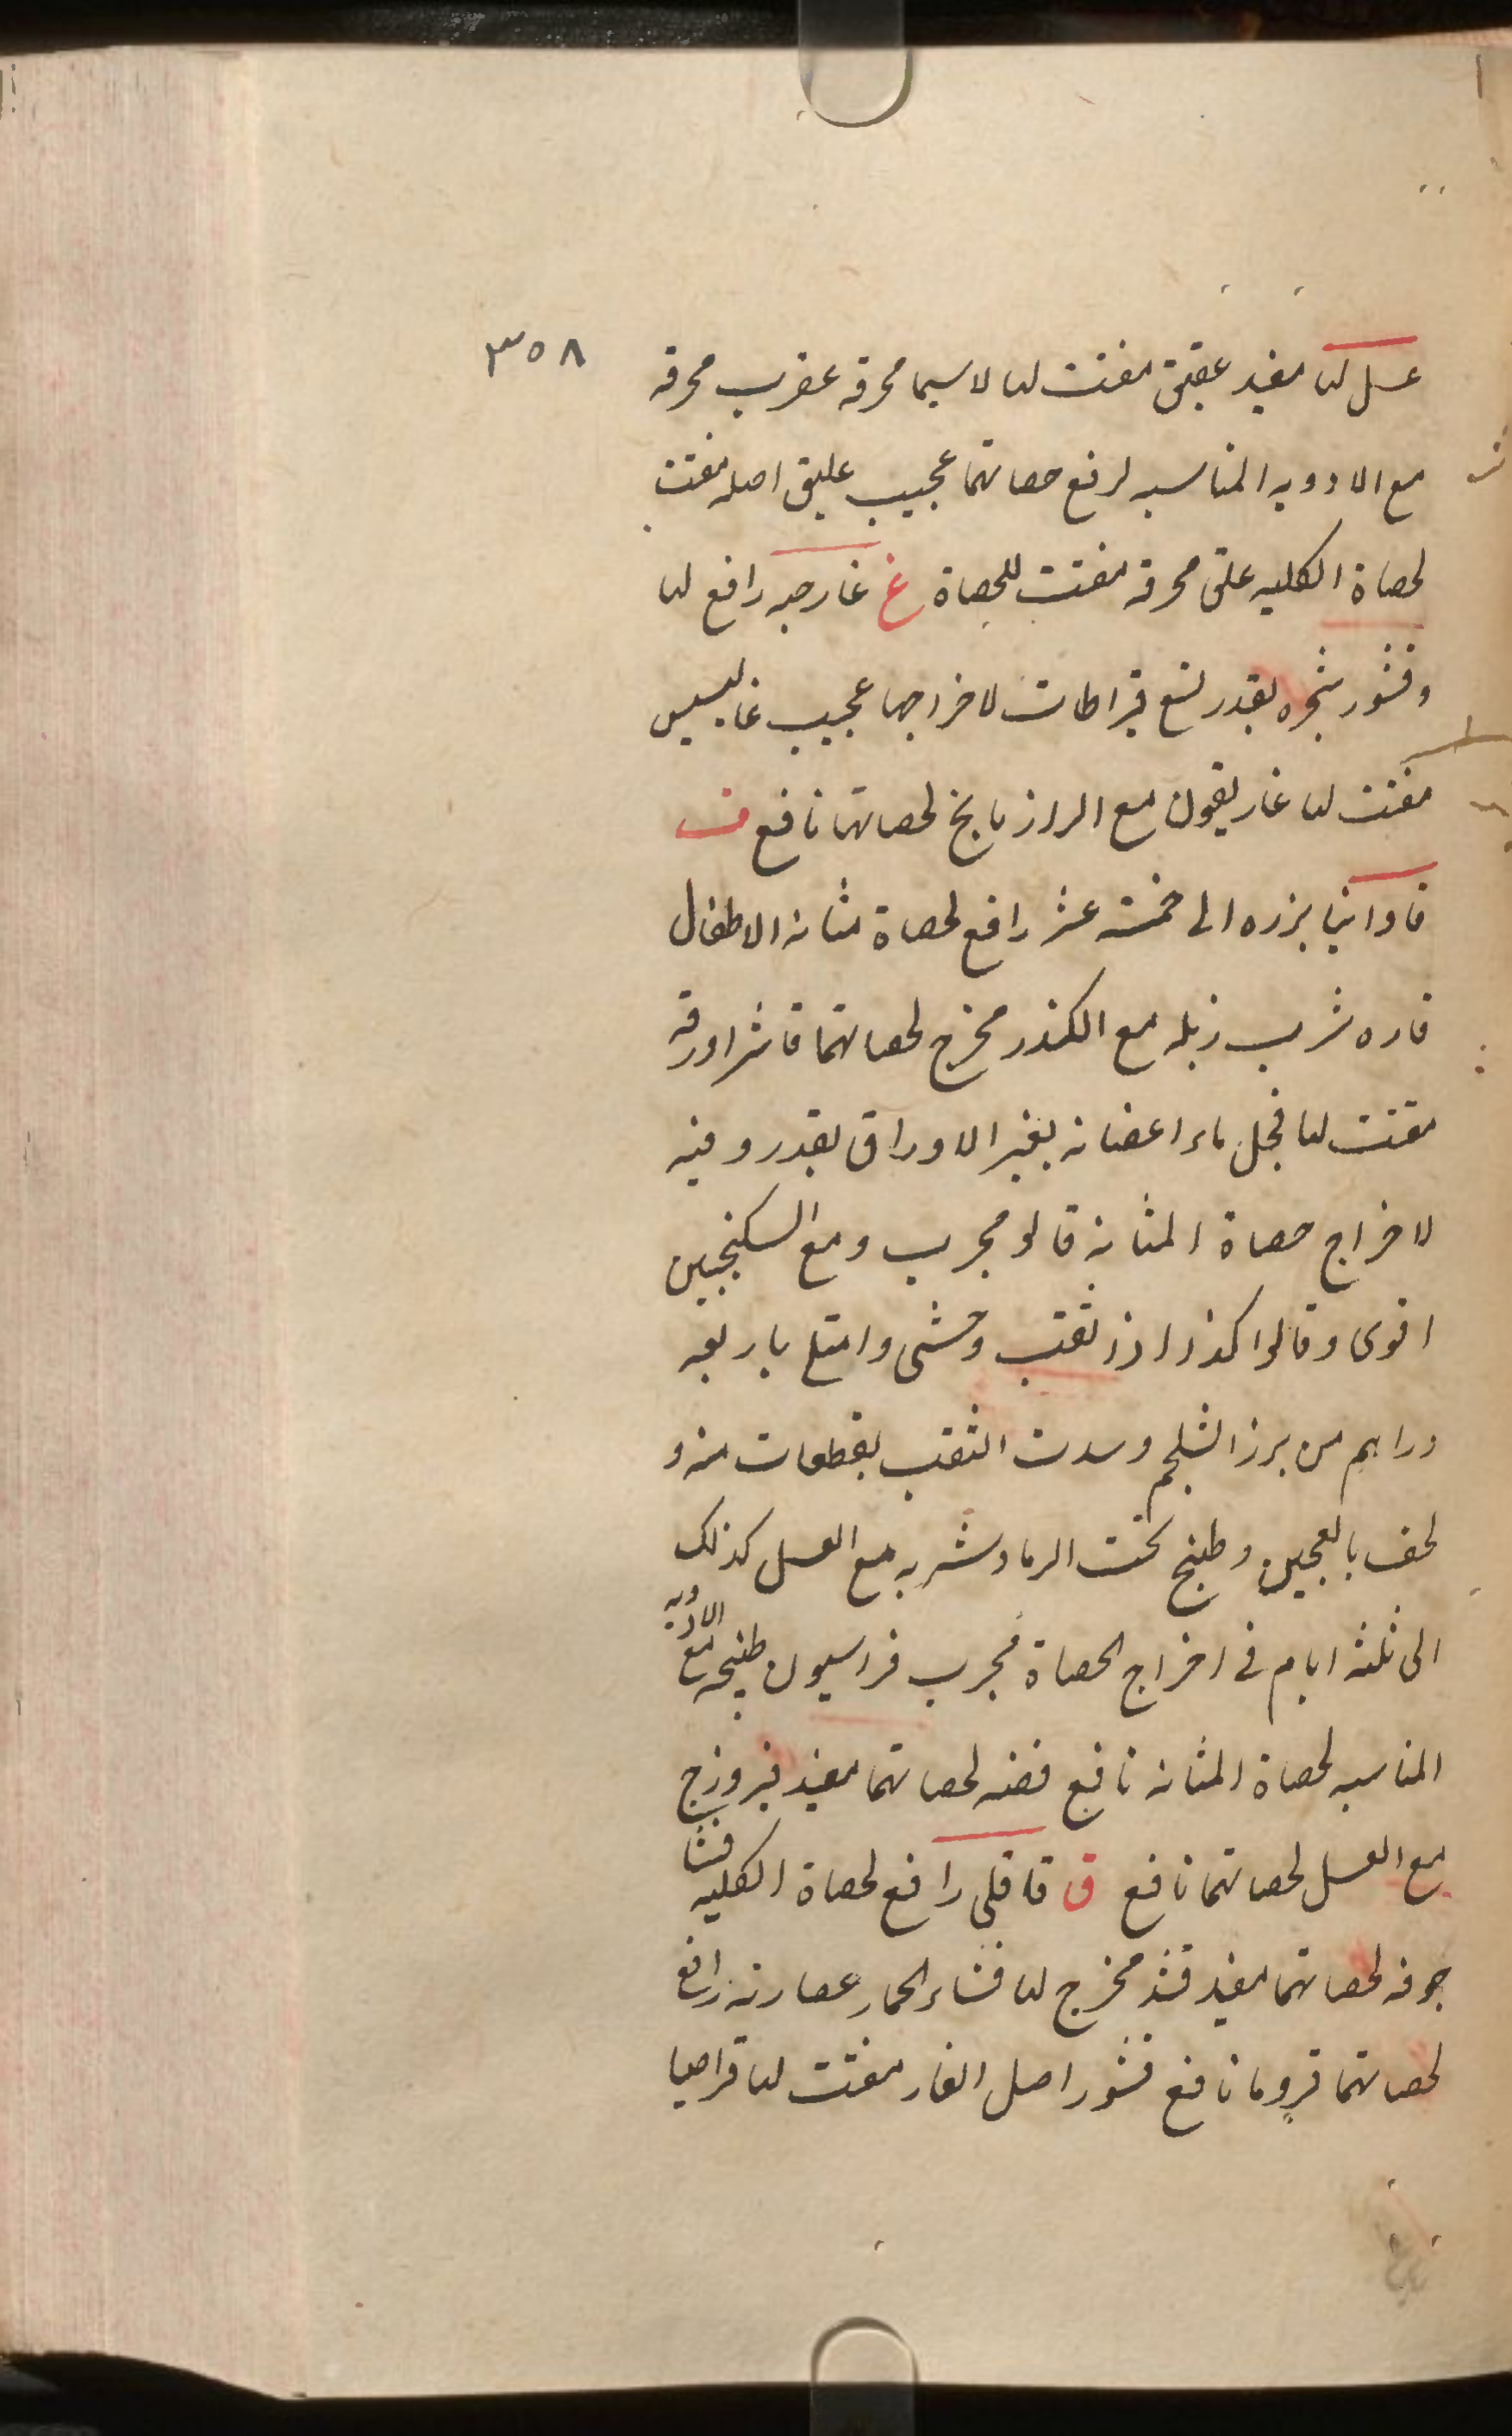 ٣٥٨
عسل لها مفيد عقيق مفتت لها لاسيما محرقه عقرب محرقه
مع الادويه المناسبه لرفع حصاتهما عجيب عليق اصله مفتت
لحصاة الكليه علق محرقه مفتت للحصاة غ غار حبه رافع لها
وقشور شجره بقدر تسع قيراطات لاخراجها عجيب غاليسيس
مفتت لها غاريقون مع الرازيانج لحصاتهما نافع ف
فاوانيا بزره الى خمسة عشر رافع لحصاة مثانه الاطفال
فاره شرب زبله مع الكندر مخرج لحصاتهما فاشرا ورقه
مفتت لها فجل ماء اغصانه بغير الاوراق بقدر وقيه
لاخراج حصاة المثانه قالو مجرب ومع السكنجبين
اقوى وقالوا كذا اذا ثقب وحشى وامتلا باربعه
دراهم من بزر الشلجم وسدت الثقب بقطعات منه و
لحف بالعجين وطبخ تحت الرماد وشربه مع العسل كذلك
الى ثلثه ايام فى اخراج الحصاة مجرب فراسيون طبيخه مع الادويه
المناسبه لحصاة المثانه نافع فضه لحصاتهما مفيد فيروزج
مع العسل لحصاتهما نافع ق قاقلى رافع لحصاة الكليه قثا
جوفه لحصاتهما مفيد قند مخرج لها قثاء الحمار عصارته رافع
لحصاتهما قردمانا نافع قشور اصل الغار مفتت لها قراصيا